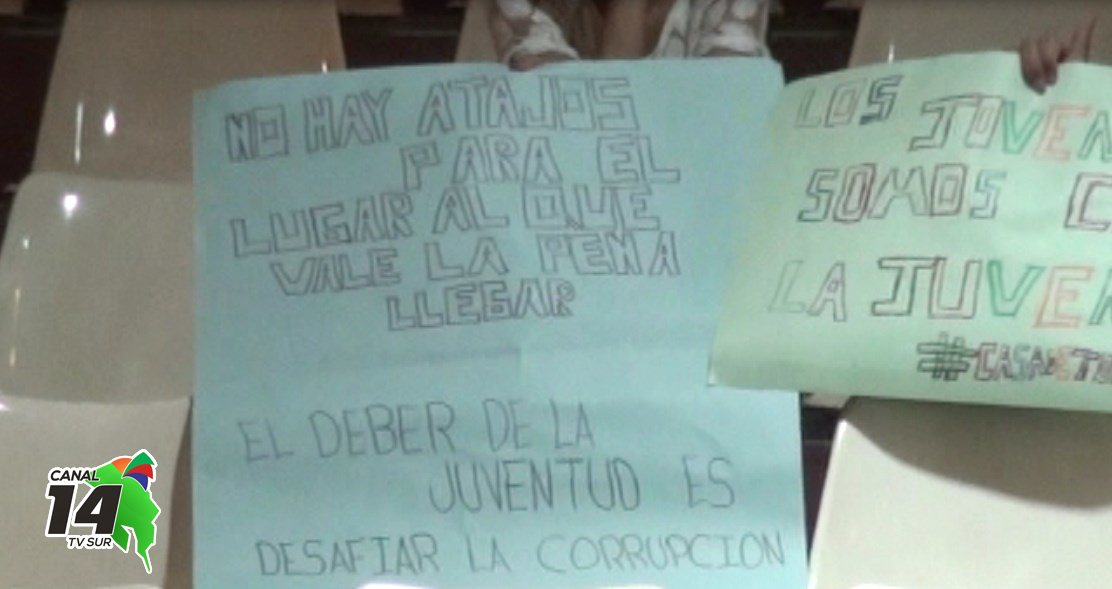 NO HAY ATAJOS
PARA EL
LUGAR AL QUE
VALE LA PENA
LLEGAR
EL DEBER DE LA
JUVENTUD ES
DESAFIAR LA CORRUPCION
LOS
SOMOS
LA
CANAL
14
TV SUR